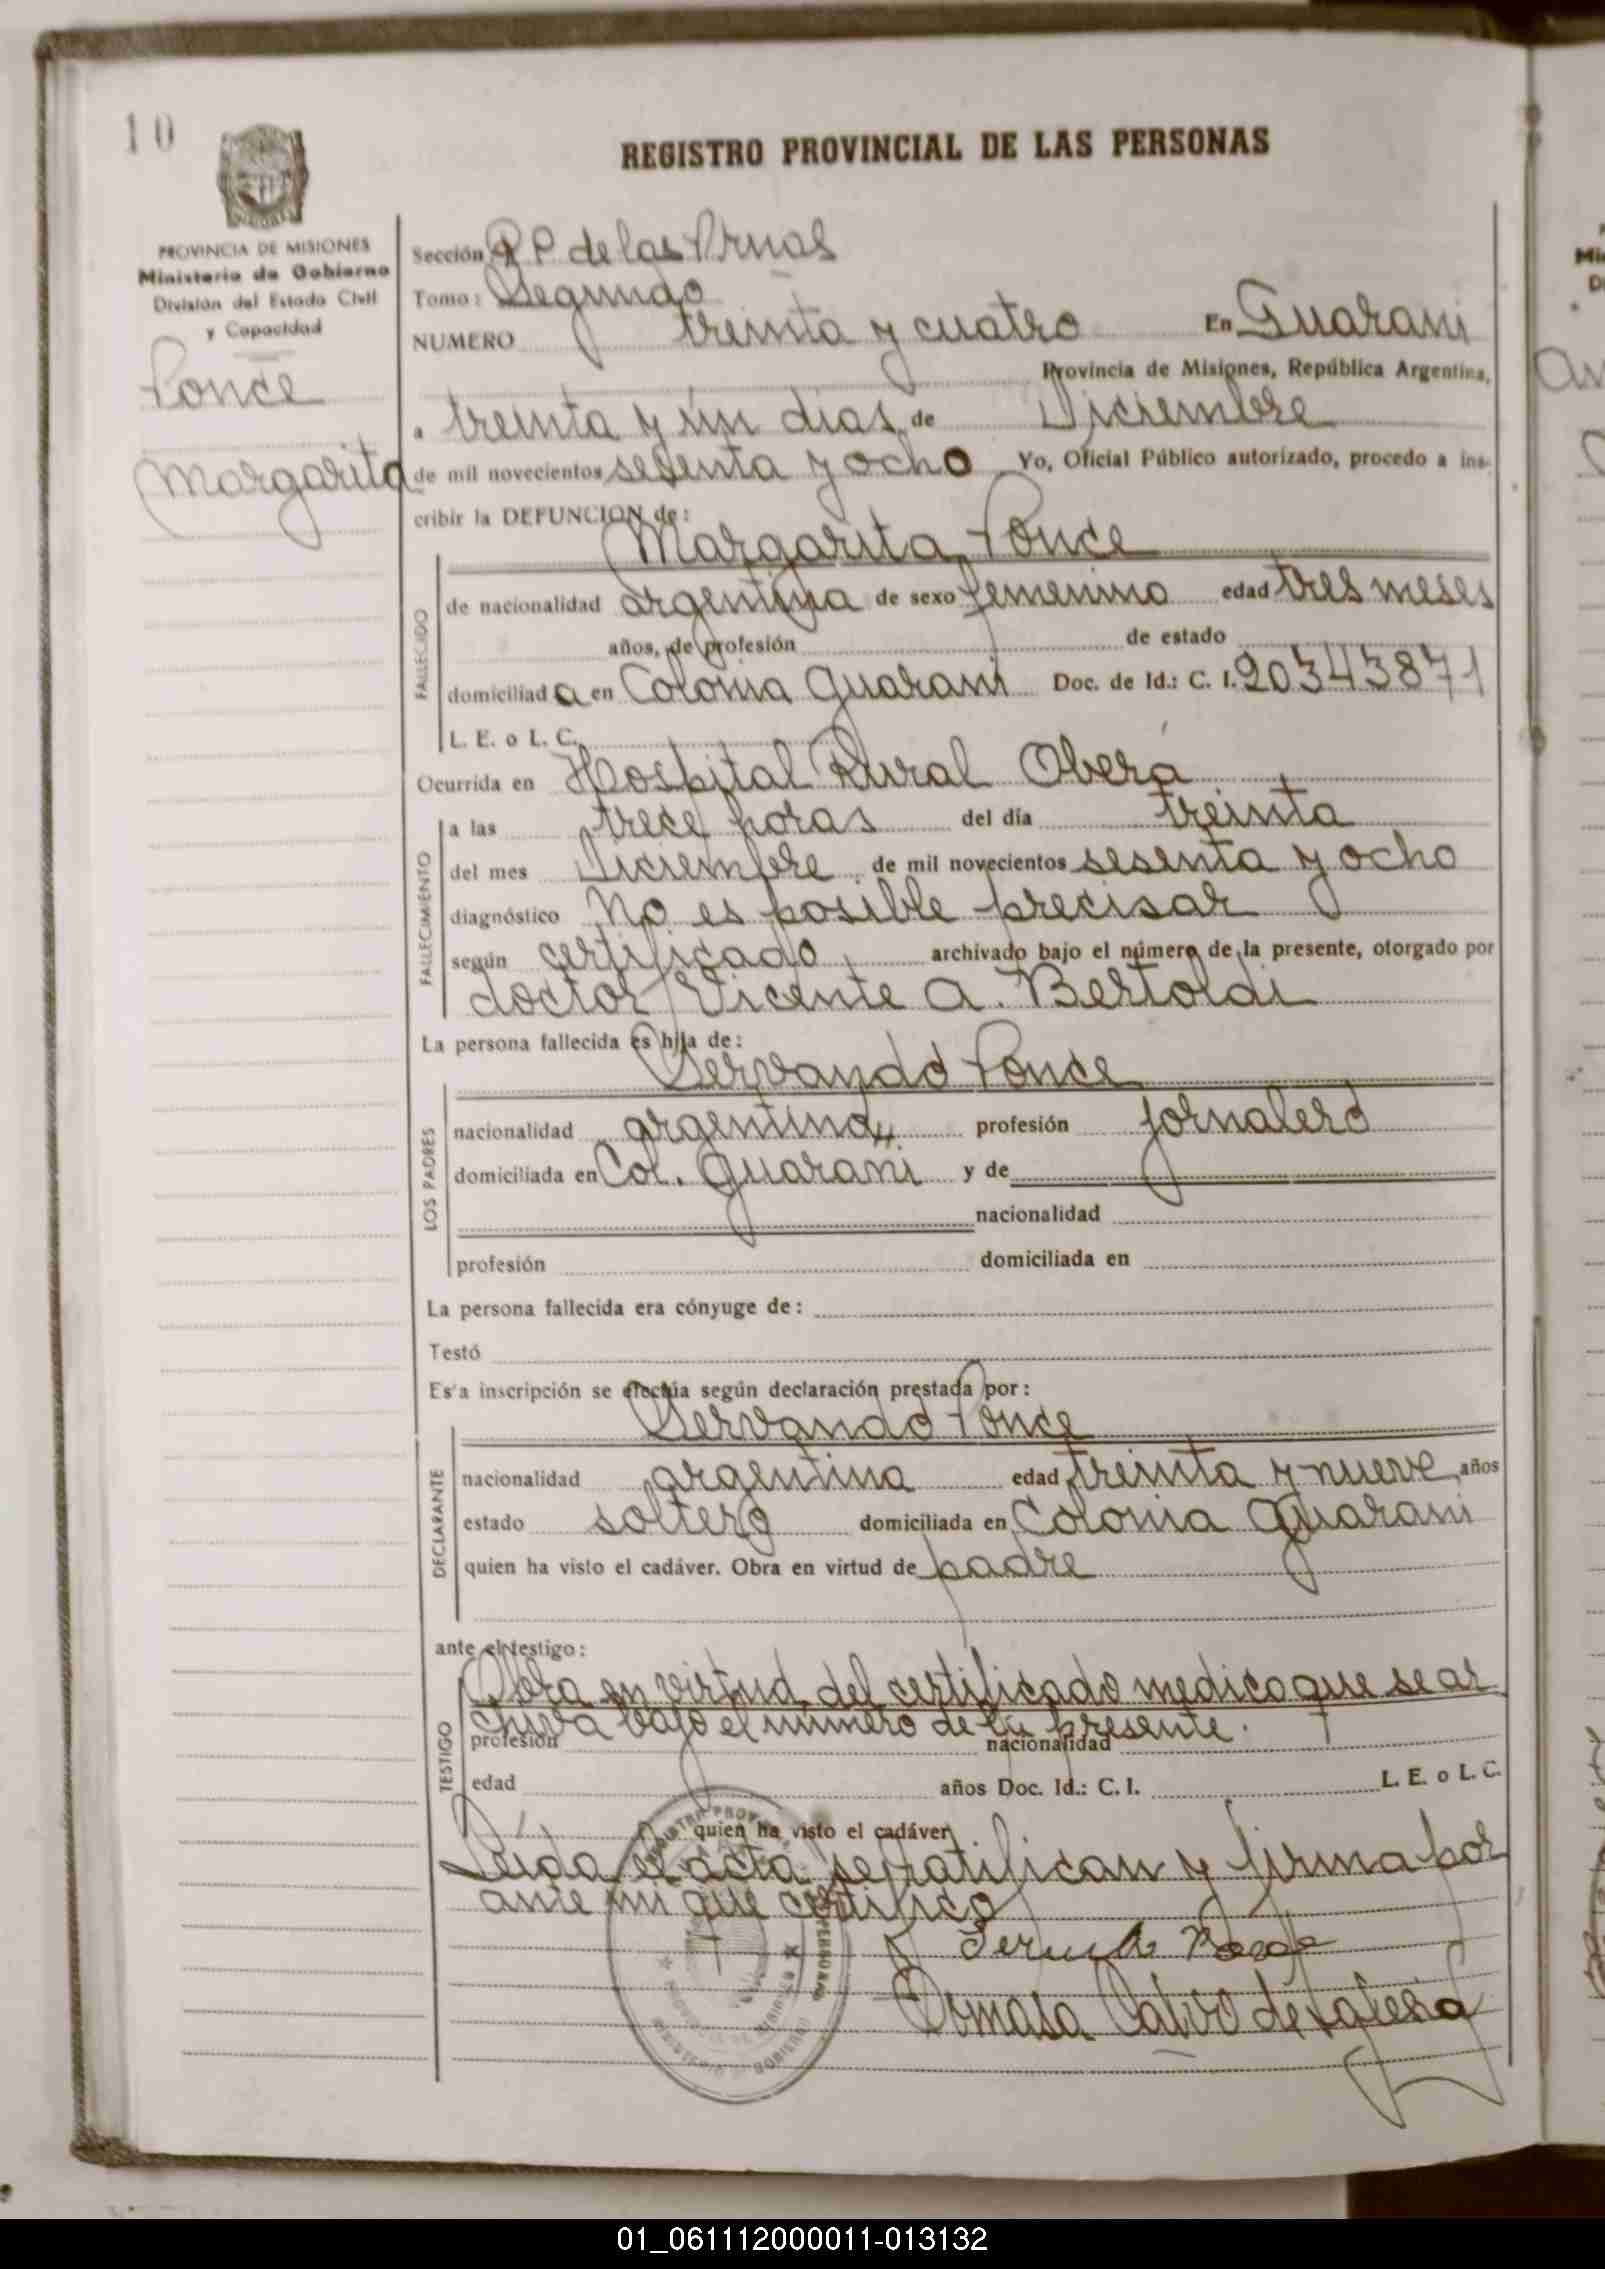 10
REGISTRO PROVINCIAL DE LAS PERSONAS
PROVINCIA DE MISIONES
Ministerio de Gobierno
División del Estado Civil
y Capacidad
Ponce
Margarita
Sección R P. de las Prnas
Tomo: Segundo
NUMERO treinta y cuatro En Guarani
Provincia de Misiones, República Argentina,
a treinta y un dias de Diciembre
de mil novecientos sesenta y ocho Yo, Oficial Público autorizado, procedo a ins-
cribir la DEFUNCION de:
Margarita Ponce
FALLECIDO
de nacionalidad argentina de sexo femenino edad tres meses
años, de profesión de estado
domiciliad a en Colonia Guarani Doc. de Id.: C. I. 20343871
L. E. o L. C.
Ocurrida en Hospital Rural Oberá
FALLECIMIENTO
a las trece horas del día treinta
del mes Diciembre de mil novecientos sesenta y ocho
diagnóstico No es posible precisar
según certificado archivado bajo el número de la presente, otorgado por
doctor Vicente A. Bertoldi
La persona fallecida es hija de:
Servando Ponce
LOS PADRES
nacionalidad argentina profesión jornalero
domiciliada en Col. Guarani y de
nacionalidad
profesión domiciliada en
La persona fallecida era cónyuge de:
Testó
Es'a inscripción se efectúa según declaración prestada por:
Servando Ponce
DECLARANTE
nacionalidad argentina edad treinta y nueve años
estado soltero domiciliada en Colonia Guarani
quien ha visto el cadáver. Obra en virtud de padre
ante el testigo:
TESTIGO
Obra en virtud del certificado medico que se ar
chiva bajo el numero de la presente.
profesión nacionalidad
edad años Doc. Id.: C. I. L. E. o L. C.
quien ha visto el cadáver
Leida el acta se ratifican y firma por
ante mi que certifico
Tomasa Calvo de
01_061112000011-013132